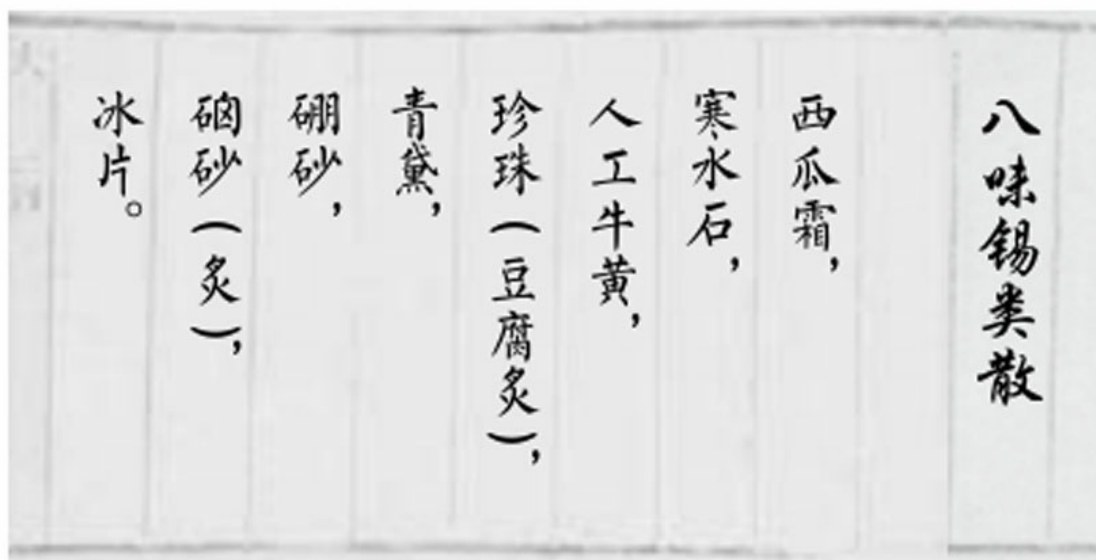 八味锡类散
西瓜霜,
寒水石,
人工牛黄,
珍珠(豆腐炙),
青黛,
硼砂,
硇砂(炙),
冰片。